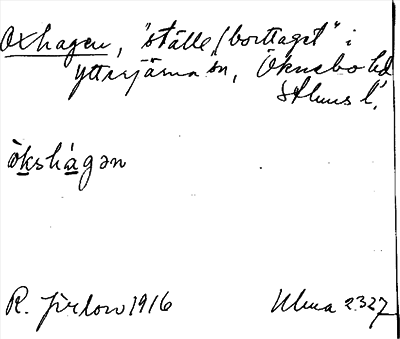 Oxhagen, "ställe (borttaget" i
Ytterjärna sn, Öknebo hd
Sthms l.
òkshágən
R. Jirlow 1916 Ulma 2327